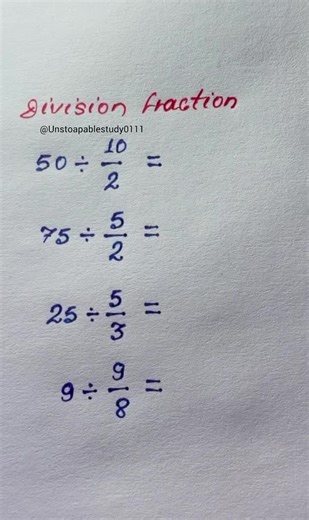 Division fraction
@Unstoapablestudy0111
50 ÷ 10/2 =
75 ÷ 5/2 =
25 ÷ 5/3 =
9 ÷ 9/8 =